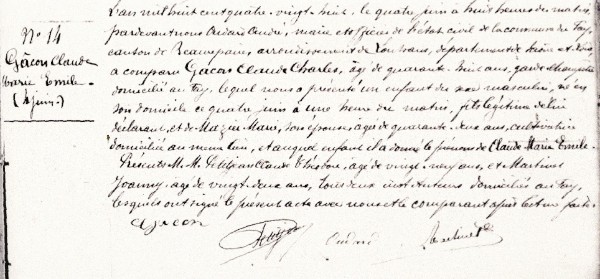 N° 14
Gâcon Claude
Marie Emile
(4 juin)
L'an mil huit cent quatre-vingt-huit, le quatre juin à huit heures du matin
pardevant nous André, maire et officier de l'état civil de la commune du Fay,
canton de Beaurepaire, arrondissement de Louhans, département de Saône et Loire
a comparu Gâcon Claude Charles, âgé de quarante huit ans, garde champêtre
domicilié au Fay, lequel nous a présenté un enfant du sexe masculin, né en
son domicile ce quatre juin à une heure du matin, fils légitime de lui
déclarant, et de Marie, son épouse, âgée de quarante deux ans, cultivatrice
domiciliée au même lieu, et auquel enfant il a donné le prénoms de Claude Marie Emile.
Présents M.M. Claude Théodore, âgé de vingt-neuf ans, et Martinet
Joanny, âgé de vingt-deux ans, tous deux instituteurs domiciliés au Fay,
lesquels ont signé le présent acte avec nous et le comparant après lecture faite.
Gâcon